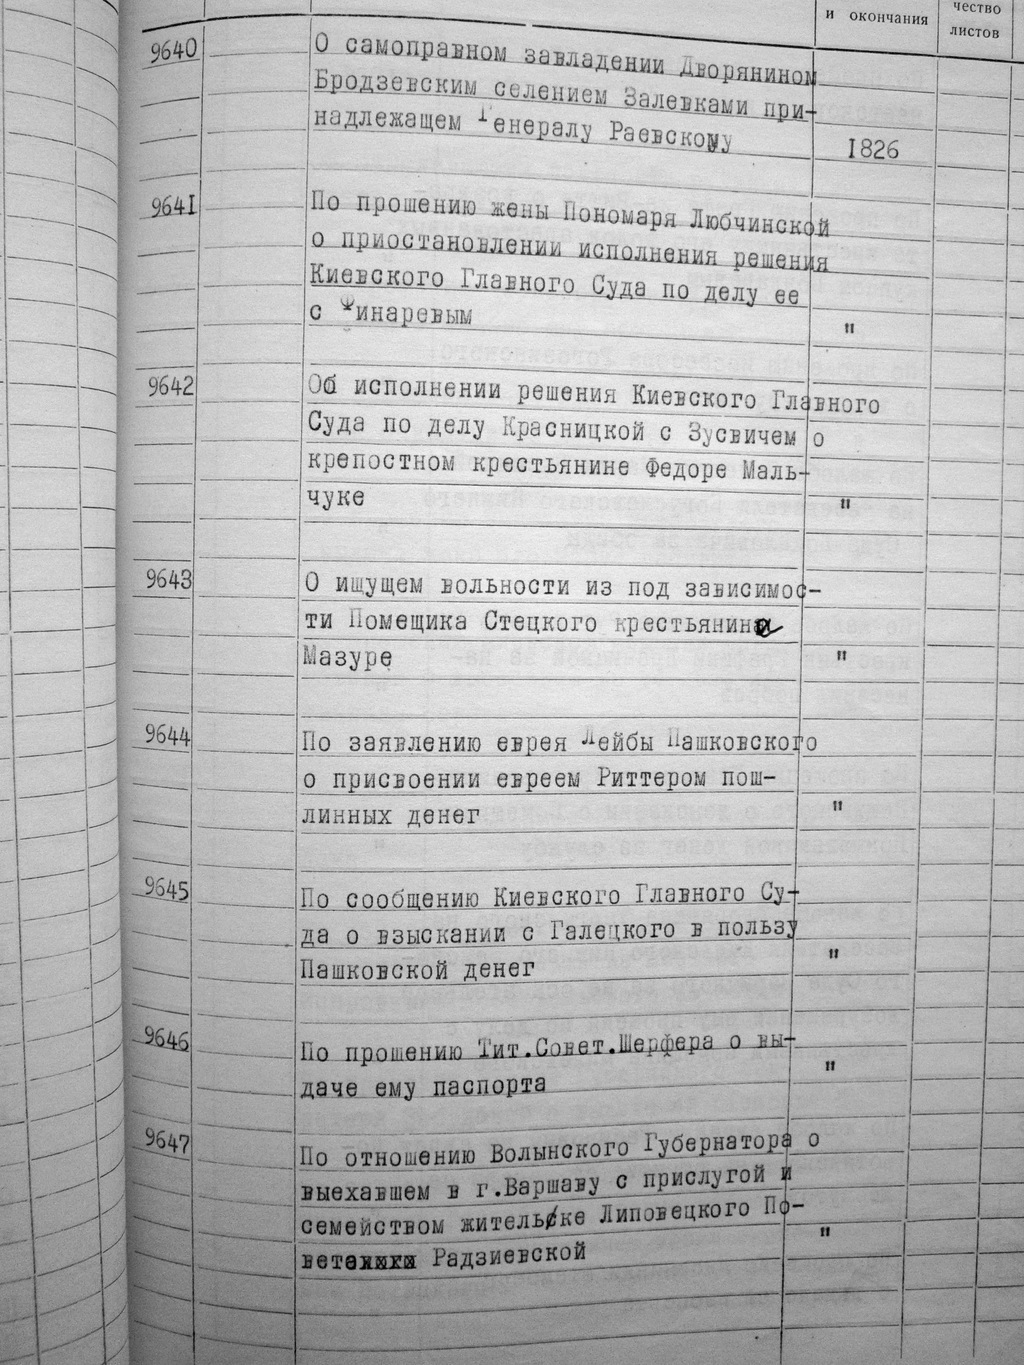 и окончания
чество
листов
9640 О самоправном завладении Дворянином
Бродзевским селением Залевками при-
надлежащем Генералу Раевскому
1826
9641 По прошению жены Пономаря Любчинской
о приостановлении исполнения решения
Киевского Главного Суда по делу ее
с инаревым "
9642 Об исполнении решения Киевского Главного
Суда по делу Красницкой с Зусвичем о
крепостном крестьянине Федоре Маль-
чуке "
9643 О ищущем вольности из под зависимос-
ти Помещика Стецкого крестьянине
Мазуре "
9644 По заявлению еврея Лейбы Пашковского
о присвоении евреем Риттером пош-
линных денег "
9645 По сообщению Киевского Главного Су-
да о взыскании с Галецкого в пользу
Пашковской денег "
9646 По прошению Тит.Совет.Шерфера о вы-
даче ему паспорта "
9647 По отношению Волынского Губернатора о
выехавшем в г.Варшаву с прислугой и
семейством жительке Липовецкого По-
вета Радзиевской "